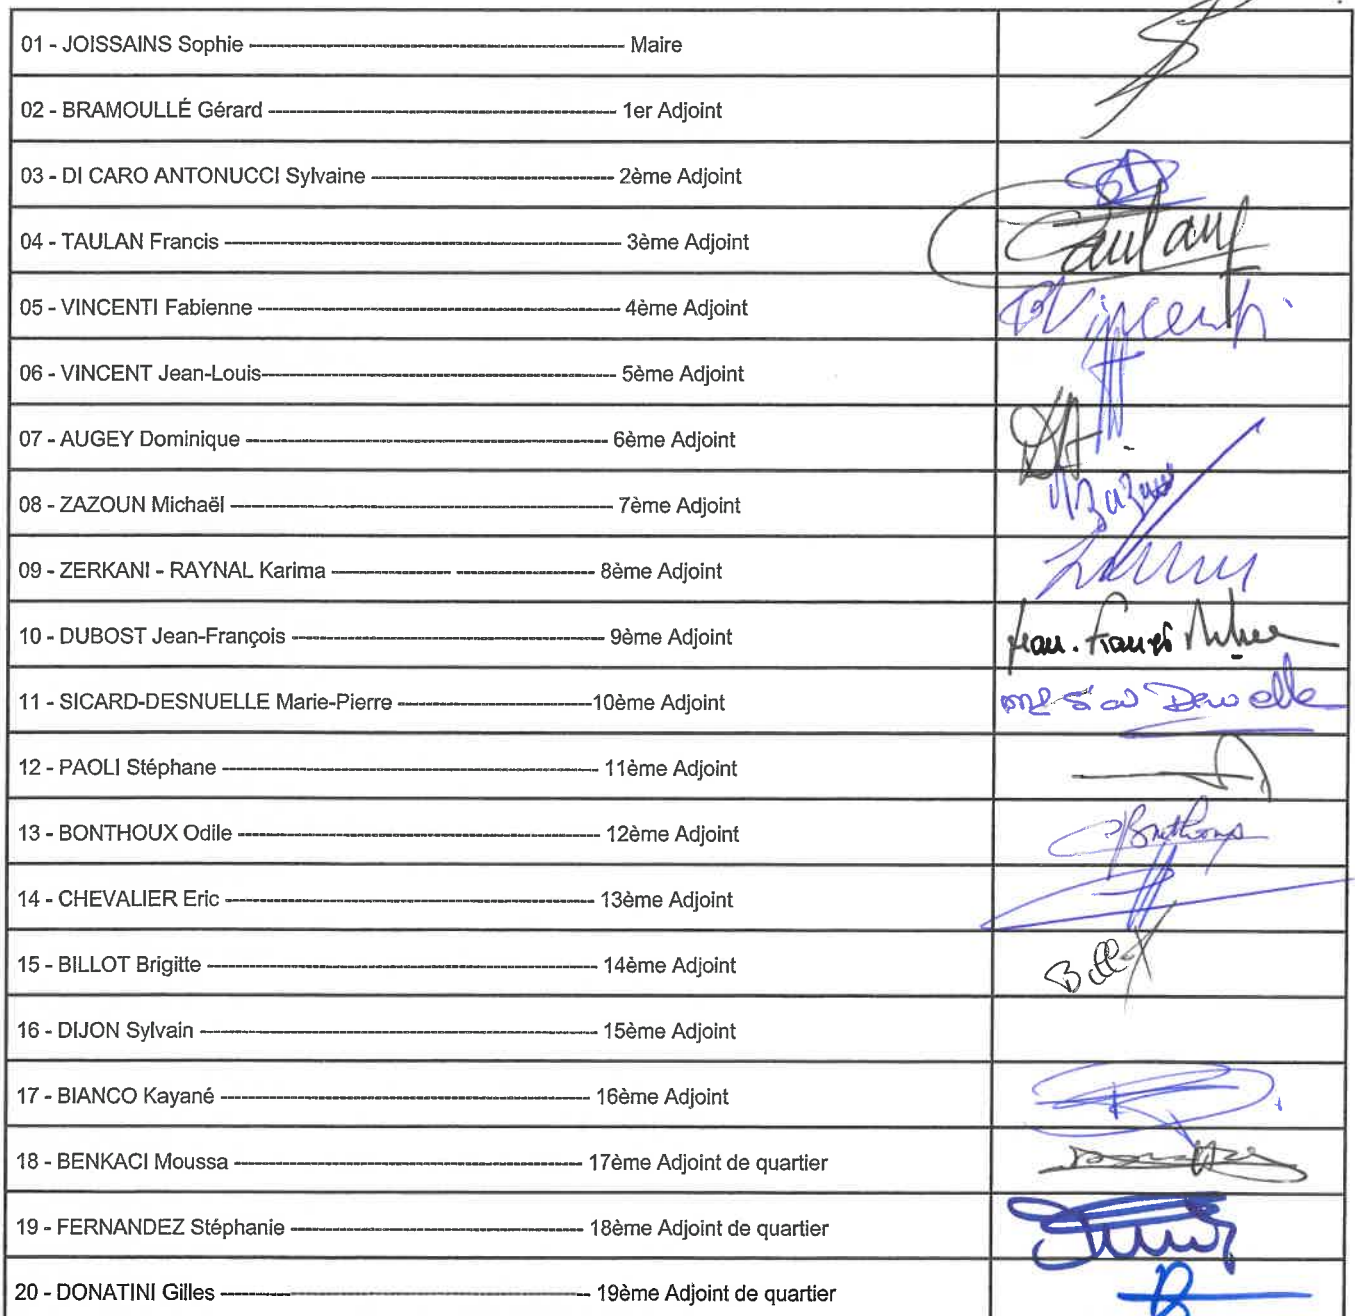 01 - JOISSAINS Sophie ---------- Maire
02 - BRAMOULLÉ Gérard ---------- 1er Adjoint
03 - DI CARO ANTONUCCI Sylvaine ---------- 2ème Adjoint
04 - TAULAN Francis ---------- 3ème Adjoint Taulan
05 - VINCENTI Fabienne ---------- 4ème Adjoint Vincenti
06 - VINCENT Jean-Louis---------- 5ème Adjoint
07 - AUGEY Dominique ---------- 6ème Adjoint
08 - ZAZOUN Michaël ---------- 7ème Adjoint
09 - ZERKANI - RAYNAL Karima ---------- ---------- 8ème Adjoint
10 - DUBOST Jean-François ---------- 9ème Adjoint
11 - SICARD-DESNUELLE Marie-Pierre ----------10ème Adjoint
12 - PAOLI Stéphane ---------- 11ème Adjoint
13 - BONTHOUX Odile ---------- 12ème Adjoint
14 - CHEVALIER Eric ---------- 13ème Adjoint
15 - BILLOT Brigitte ---------- 14ème Adjoint
16 - DIJON Sylvain ---------- 15ème Adjoint
17 - BIANCO Kayané ---------- 16ème Adjoint
18 - BENKACI Moussa ---------- 17ème Adjoint de quartier
19 - FERNANDEZ Stéphanie ---------- 18ème Adjoint de quartier
20 - DONATINI Gilles ---------- 19ème Adjoint de quartier